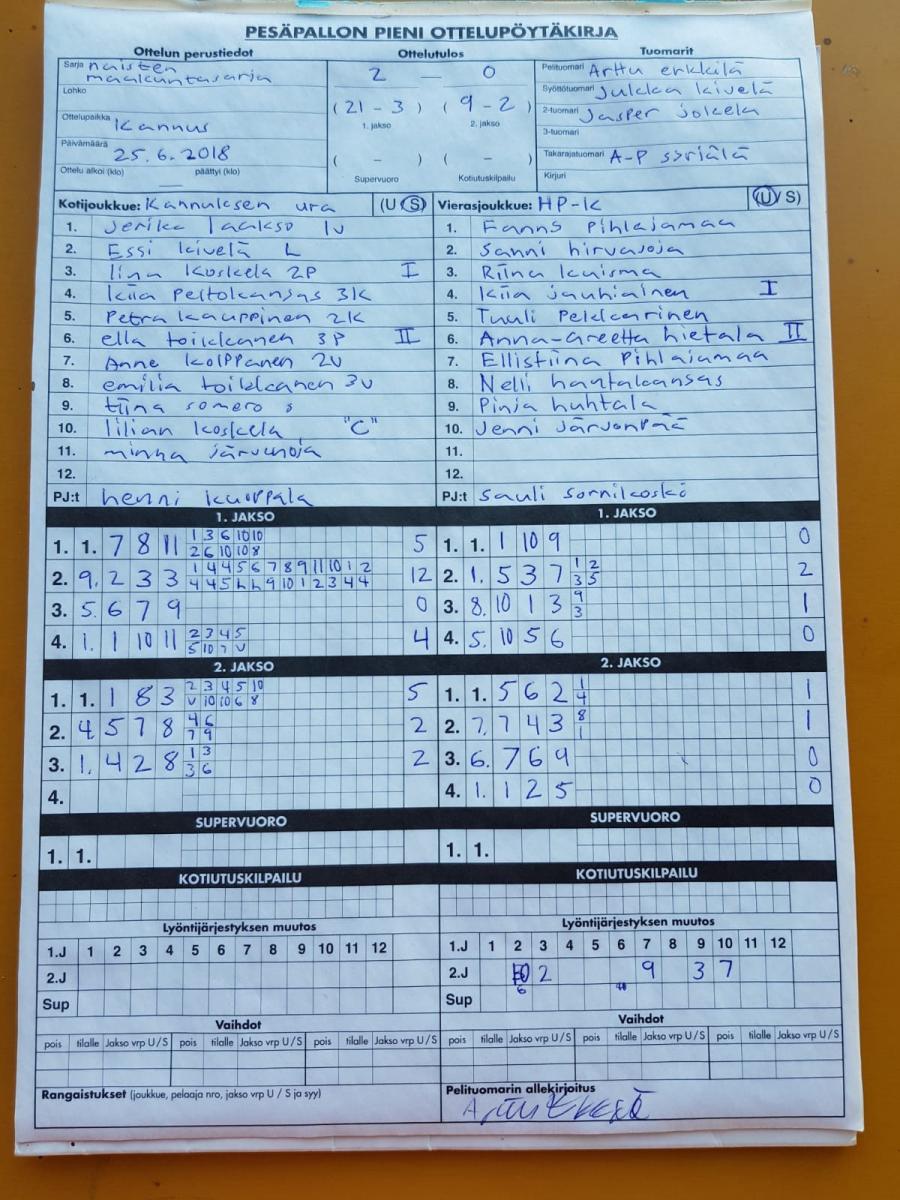 PESÄPALLON PIENI OTTELUPÖYTÄKIRJA
Ottelun perustiedot Ottelutulos Tuomarit
Sarja naisten maakuntasarja
Lohko
Ottelupaikka Kannus
Päivämäärä 25.6.2018
Ottelu alkoi (klo) päättyi (klo)
2 — 0
(21 - 3) (9 - 2)
1. jakso 2. jakso
( - ) ( - )
Supervuoro Kotiutuskilpailu
Pelituomari Arttu erkkilä
Syöttötuomari Jukka kivelä
2-tuomari Jasper jokela
3-tuomari
Takarajatuomari A-P särjälä
Kirjuri
Kotijoukkue: Kannuksen ura (U S)
1. Jerika laakso lv
2. Essi kivelä L
3. Iina Koskela 2P I
4. kiia Peltokangas 3K
5. Petra kauppinen 2K
6. ella toikkanen 3P II
7. Anne kolppanen 2V
8. emilia toikkanen 3V
9. tiina somero s
10. lilian koskela "C"
11. minna järvenoja
12.
PJ:t henni kuoppala
Vierasjoukkue: HP-K (U S)
1. Fanns Pihlajamaa
2. Sanni hirvasoja
3. Riina kaisma
4. Kiia jauhiainen I
5. Tuuli Pekkarinen
6. Anna-Greetta hietala II
7. Ellistiina Pihlajamaa
8. Nelli hautakangas
9. Pinja huhtala
10. Jenni Järvenpää
11.
12.
PJ:t sauli sornikoski
1. JAKSO
1. 1. 7 8 11 1 3 6 10 10 5
2 6 10 10 8
2. 9. 2 3 3 1 4 4 5 6 7 8 9 11 10 1 2 12
4 4 5 h h 9 10 1 2 3 4 4
3. 5. 6 7 9 0
4. 1. 1 10 11 2 3 4 5 4
5 10 7 V
1. JAKSO
1. 1. 1 10 9 0
2. 1. 5 3 7 1 2 2
3 5
3. 8. 10 1 3 9 1
3
4. 5. 10 5 6 0
2. JAKSO
1. 1. 1 8 3 2 3 4 5 10 5
V 10 10 6 8
2. 4 5 7 8 4 6 2
7 9
3. 1. 4 2 8 1 3 2
3 6
4.
2. JAKSO
1. 1. 5 6 2 1 1
4
2. 7. 7 4 3 8 1
1
3. 6. 7 6 9 0
4. 1. 1 2 5 0
SUPERVUORO SUPERVUORO
1. 1. 1. 1.
KOTIUTUSKILPAILU KOTIUTUSKILPAILU
Lyöntijärjestyksen muutos
1.J 1 2 3 4 5 6 7 8 9 10 11 12
2.J
Sup
Lyöntijärjestyksen muutos
1.J 1 2 3 4 5 6 7 8 9 10 11 12
2.J 2 9 3 7
6
Sup
Vaihdot Vaihdot
pois tilalle Jakso vrp U/S pois tilalle Jakso vrp U/S pois tilalle Jakso vrp U/S
pois tilalle Jakso vrp U/S pois tilalle Jakso vrp U/S pois tilalle Jakso vrp U/S
Rangaistukset (joukkue, pelaaja nro, jakso vrp U / S ja syy)
Pelituomarin allekirjoitus